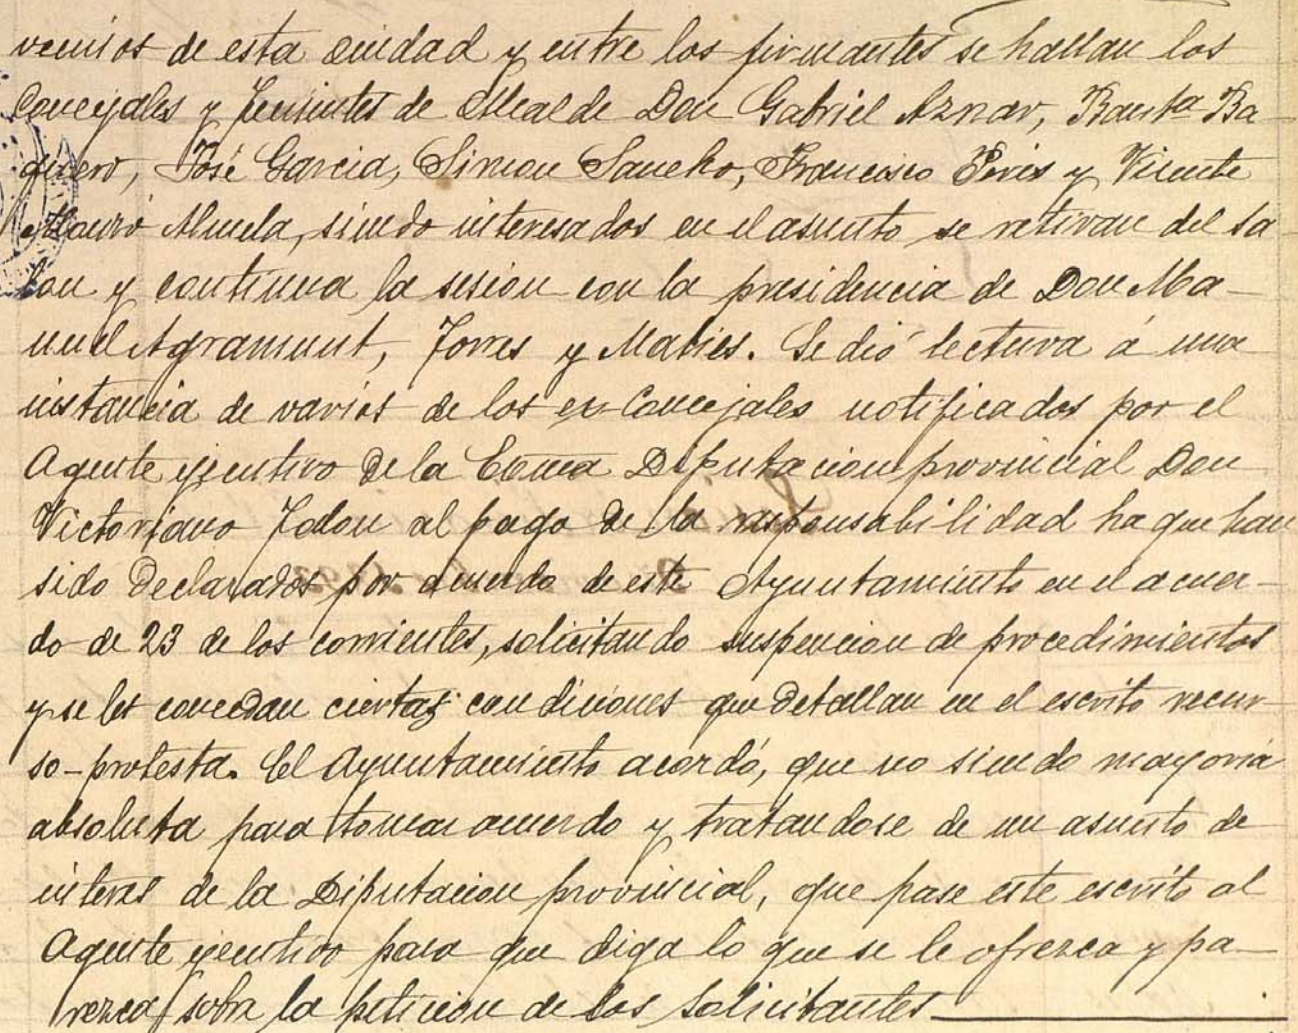 vecinos de esta ciudad y entre los firmantes se hallan los
Concejales y Tenientes de Alcalde Don Gabriel Aznar, Bauta Ba-
quero, José Garcia, Simon Sancho, Francisco Piris y Vicente
Mauró Muela, siendo interesados en el asunto se retiran del sa
lon y continua la sesion con la presidencia de Don Ma-
nuel Agramunt, Torres y Maties. Se dió lectura á una
instancia de varios de los ex-Concejales notificados por el
Agente ejecutivo de la Eccma Diputacion provincial Don
Victoriano Falou al pago de la responsabilidad ha que han
sido declarados por acuerdo de este Ayuntamiento en el acuer-
do de 23 de los corrientes, solicitando suspencion de procedimientos
y se les concedan ciertas condiciones que detallan en el escrito recur
so-protesta. El Ayuntamiento acordó, que no siendo mayoria
absoluta para tomar acuerdo y tratandose de un asunto de
interes de la Diputacion provincial, que pase este escrito al
Agente ejecutivo para que diga lo que se le ofrezca y pa-
rezca sobre la peticion de los solicitantes